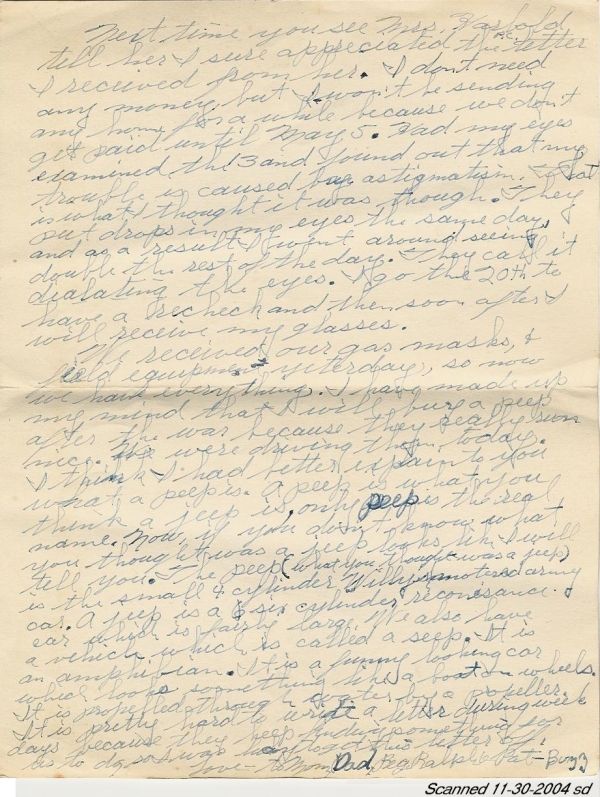 Next time you see Mrs.
tell her I sure appreciated the letter
I received from her. I don't need
any money, but I won't be sending
any home for a while because we don't
get paid until May 5. Had my eyes
examined the 3 and found out that my
trouble is caused by astigmatism. That
is what I thought it was though. They
put drops in my eyes the same day,
and as a result I went around seeing
double the rest of the day. They call it
dialating the eyes. I go the 20th to
have a recheck and then soon after I
will receive my glasses.
We received our gas masks, &
field equipment yesterday, so now
we have everything. I have made up
my mind that I will buy a peep
after the war because they really run
nice. We were driving them today.
I think I had better explain to you
what a peep is. A peep is what you
think a jeep is only peep is the real
name. Now, if you don't know what
you thought was a jeep looks like I will
tell you. The peep (what you thought was a jeep)
is the small 4 cylinder Willys motored army
car. A jeep is a 6 six cylinder reconesance
car which is fairly large. We also have
a vehicle which is called a seep. It is
an amphibian. It is a funny looking car
which looks something like a boat on wheels.
It is propelled through water by a propeller.
It is pretty hard to write a letter during week
days because they keep finding something for
us to do, so I was this letter off.
Love - to Mom, Dad, Reg, Ralph & Pat - Boyz
Scanned 11-30-2004 sd